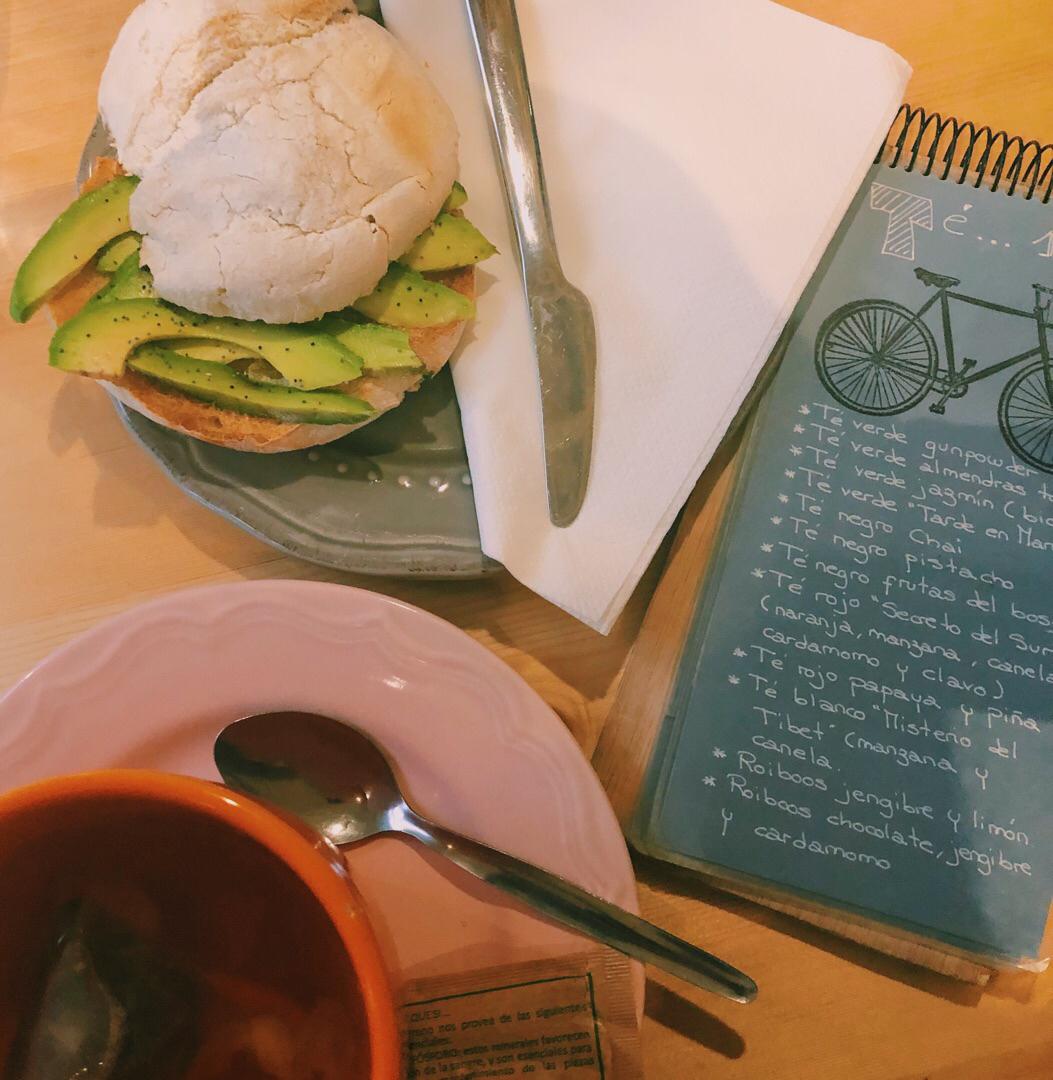 Té... 1
* Té verde gunpowder
* Té verde almendras
* Té verde jazmín
* Té verde "Tarde en
* Té negro Chai
* Té negro pistacho
* Té negro frutas del
* Té rojo "Secreto del Sur
(naranja, manzana, canela
cardamomo y clavo)
* Té rojo papaya y piña
* Té blanco "Misterio del
Tibet" (manzana y
canela.
* Roiboos jengibre y limón
* Roiboos chocolate, jengibre
y cardamomo
QUESI...
nos provea de las siguientes
estos minerales favorecen
de la sangre, y son esenciales para
de las piezas